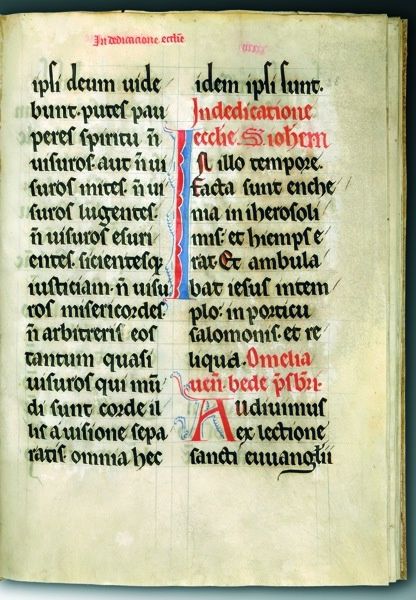 In dedicacione ecclie
ipsi deum uide
bunt. putes pau
peres spiritu n̄
uisuros. aut n̄ ui
suros mites. n̄ ui
suros lugentes.
n̄ uisuros esuri
entes. sicientesq;
iusticiam. n̄ uisu
ros misericordes.
n̄ arbitreris eos
tantum quasi
uisuros qui mū
di sunt corde il
lis a uisione sepa
ratis. omnia hec
idem ipsi sunt.
In dedicatione
ecclie. S. iohem
In illo tempore.
Facta sunt enche
nia in iherosoli
mis. et hiemps e
rat. Et ambula
bat iesus in tem
plo. in porticu
salomonis. et re
liqua. Omelia
uen̄. bede p̄sbri.
Audiuimus
ex lectione
sancti euuanglii